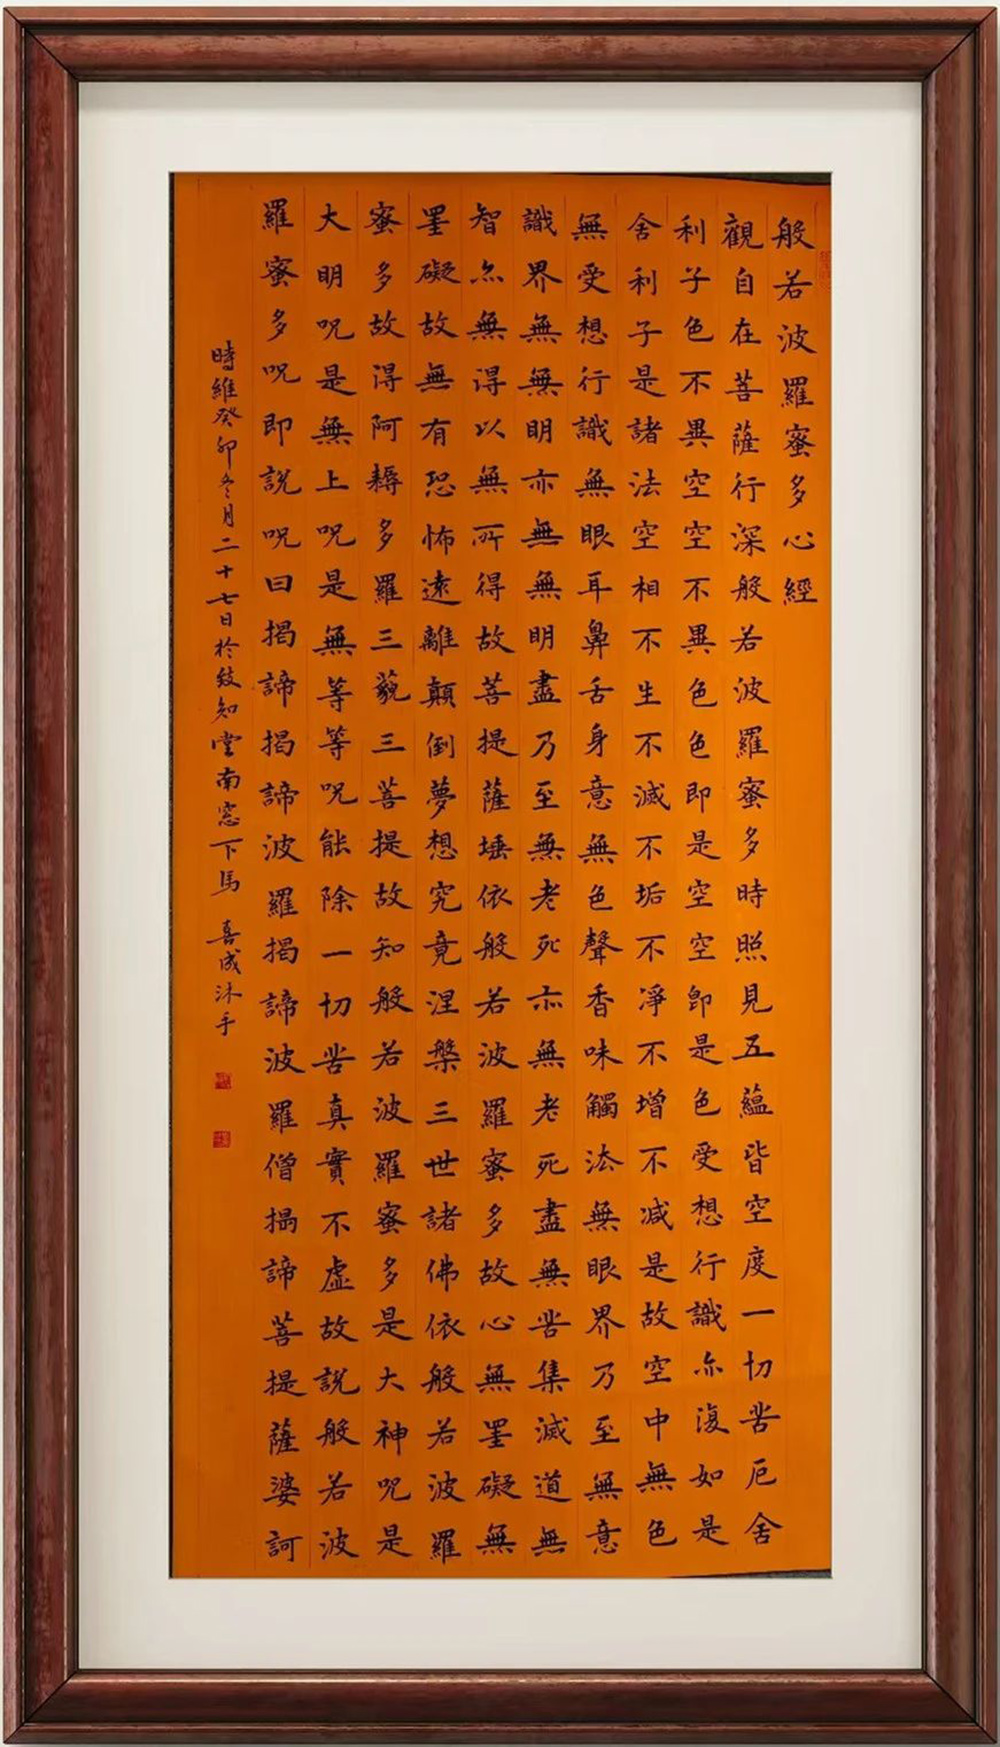 般若波羅蜜多心經
觀自在菩薩行深般若波羅蜜多時照見五蘊皆空度一切苦厄舍
利子色不異空空不異色色即是空空即是色受想行識亦復如是
舍利子是諸法空相不生不滅不垢不凈不增不減是故空中無色
無受想行識無眼耳鼻舌身意無色聲香味觸法無眼界乃至無意
識界無無明亦無無明盡乃至無老死亦無老死盡無苦集滅道無
智亦無得以無所得故菩提薩埵依般若波羅蜜多故心無罣礙無
罣礙故無有恐怖遠離顛倒夢想究竟涅槃三世諸佛依般若波羅
蜜多故得阿耨多羅三藐三菩提故知般若波羅蜜多是大神呪是
大明呪是無上呪是無等等呪能除一切苦真實不虛故說般若波
羅蜜多呪即說呪曰揭諦揭諦波羅揭諦波羅僧揭諦菩提薩婆訶
時維癸卯冬月二十七日於致知堂南窓下馬喜成沐手